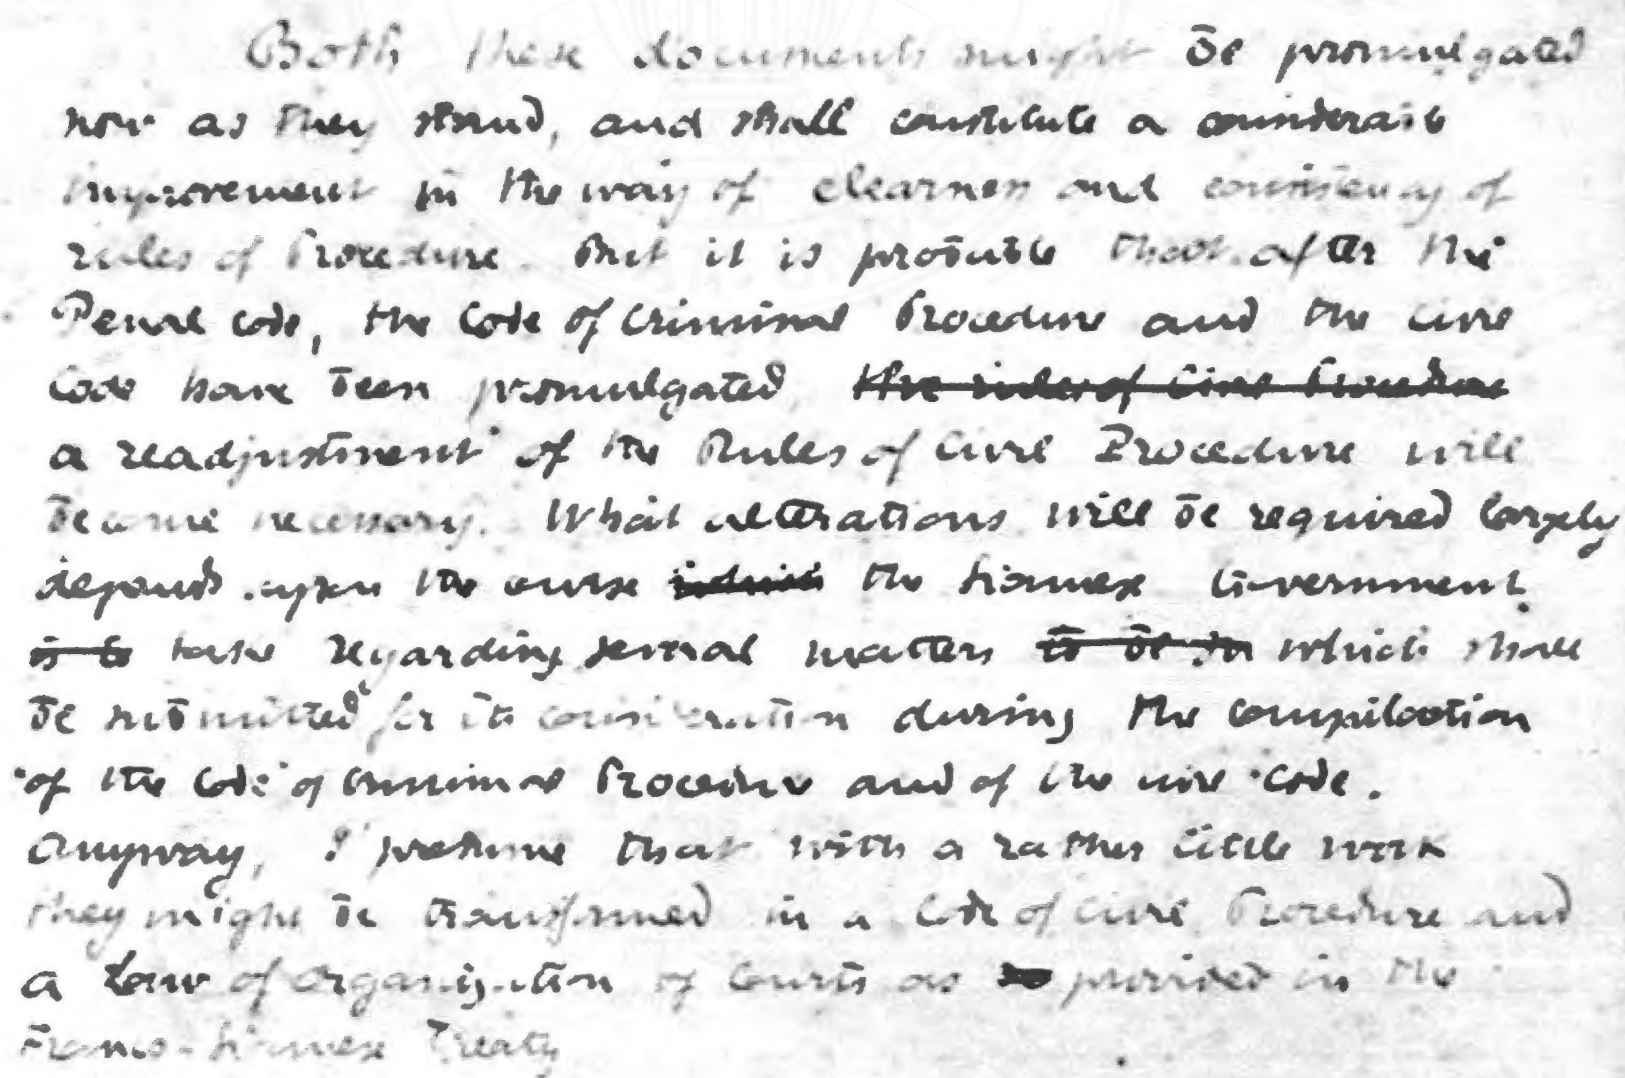 Both these documents might be promulgated
now as they stand, and shall constitute a considerable
improvement in the way of clearness and consistency of
rules of Procedure. But it is probable that after the
Penal Code, the Code of Criminal Procedure and the Civil
Code have been promulgated, the rules of Civil Procedure
a readjustment of the Rules of Civil Procedure will
become necessary. What alterations will be required largely
depends upon the course the Siamese Government
is to take regarding several matters to be which shall
be submitted for its consideration during the compilation
of the Code of Criminal Procedure and of the Civil Code.
Anyway, I presume that with a rather little work
they might be transformed in a Code of Civil Procedure and
a Law of Organization of Courts as provided in the
Franco-Siamese Treaty